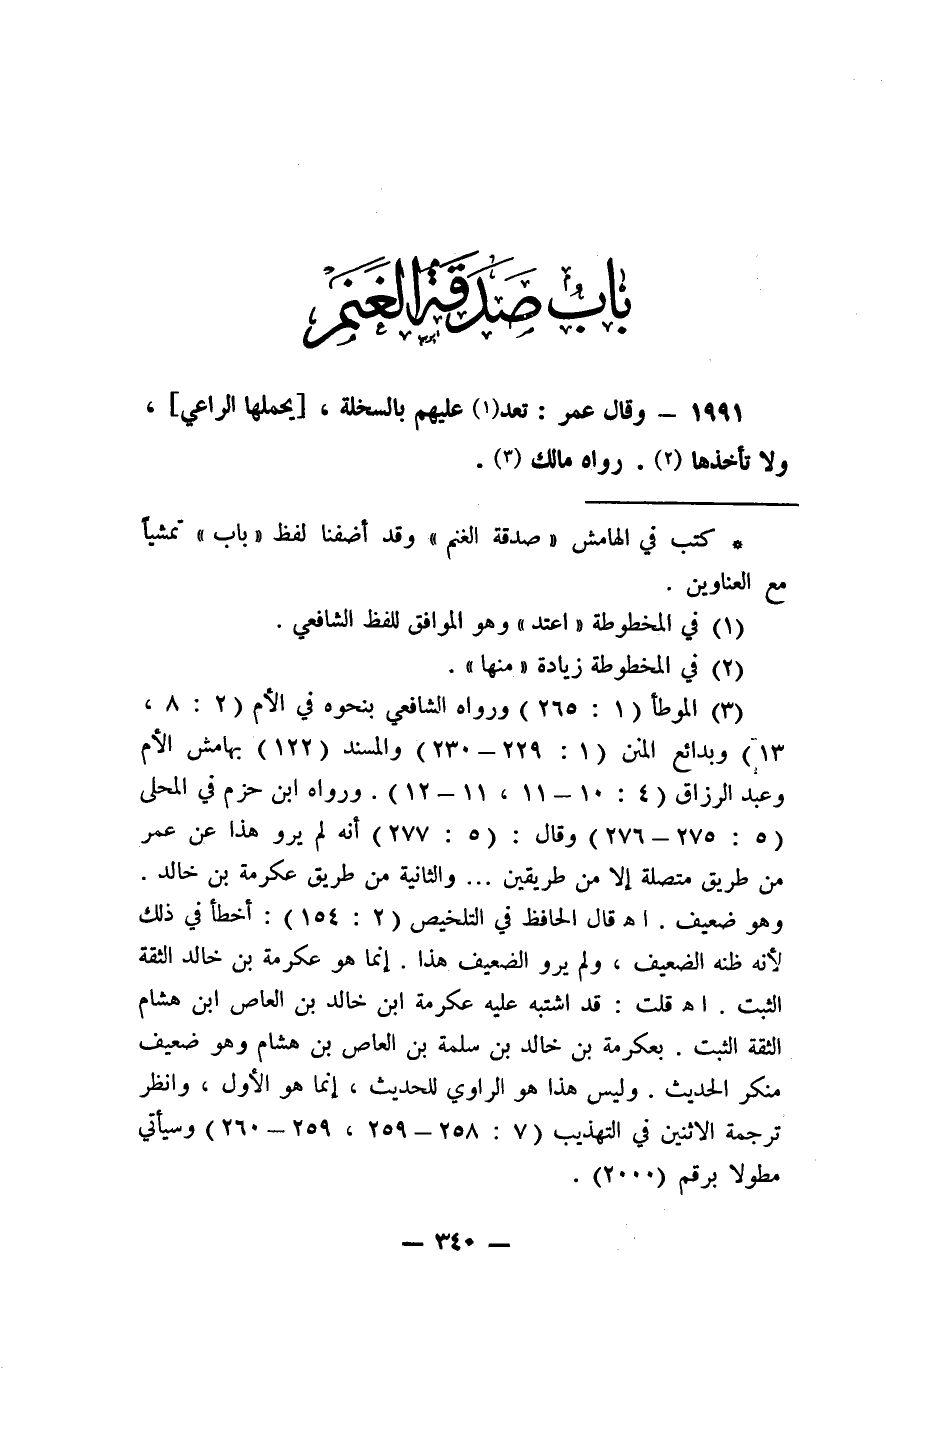 باب صدقة الغنم
١٩٩١ – وقال عمر : تعد(١) عليهم بالسخلة ، [يحملها الراعي] ،
ولا تأخذها (٢) . رواه مالك (٣) .
* كتب في الهامش « صدقة الغنم » وقد أضفنا لفظ « باب » تمشياً
مع العناوين .
(١) في المخطوطة « اعتد » وهو الموافق للفظ الشافعي .
(٢) في المخطوطة زيادة « منها » .
(٣) الموطأ ( ١ : ٢٦٥ ) ورواه الشافعي بنحوه في الأم ( ٢ : ٨ ،
١٣ ) وبدائع المنن ( ١ : ٢٢٩ – ٢٣٠ ) والمسند ( ١٢٢ ) بهامش الأم
وعبد الرزاق ( ٤ : ١٠ – ١١ ، ١١ – ١٢ ) . ورواه ابن حزم في المحلى
( ٥ : ٢٧٥ – ٢٧٦ ) وقال : ( ٥ : ٢٧٧ ) أنه لم يرو هذا عن عمر
من طريق متصلة إلا من طريقين ... والثانية من طريق عكرمة بن خالد .
وهو ضعيف . اه قال الحافظ في التلخيص ( ٢ : ١٥٤ ) : أخطأ في ذلك
لأنه ظنه الضعيف ، ولم يرو الضعيف هذا . إنما هو عكرمة بن خالد الثقة
الثبت . اه قلت : قد اشتبه عليه عكرمة ابن خالد بن العاص ابن هشام
الثقة الثبت . بعكرمة بن خالد بن سلمة بن العاص بن هشام وهو ضعيف
منكر الحديث . وليس هذا هو الراوي للحديث ، إنما هو الأول ، وانظر
ترجمة الاثنين في التهذيب ( ٧ : ٢٥٨ – ٢٥٩ ، ٢٥٩ – ٢٦٠ ) وسيأتي
مطولا برقم (٢٠٠٠) .
– ٣٤٠ –